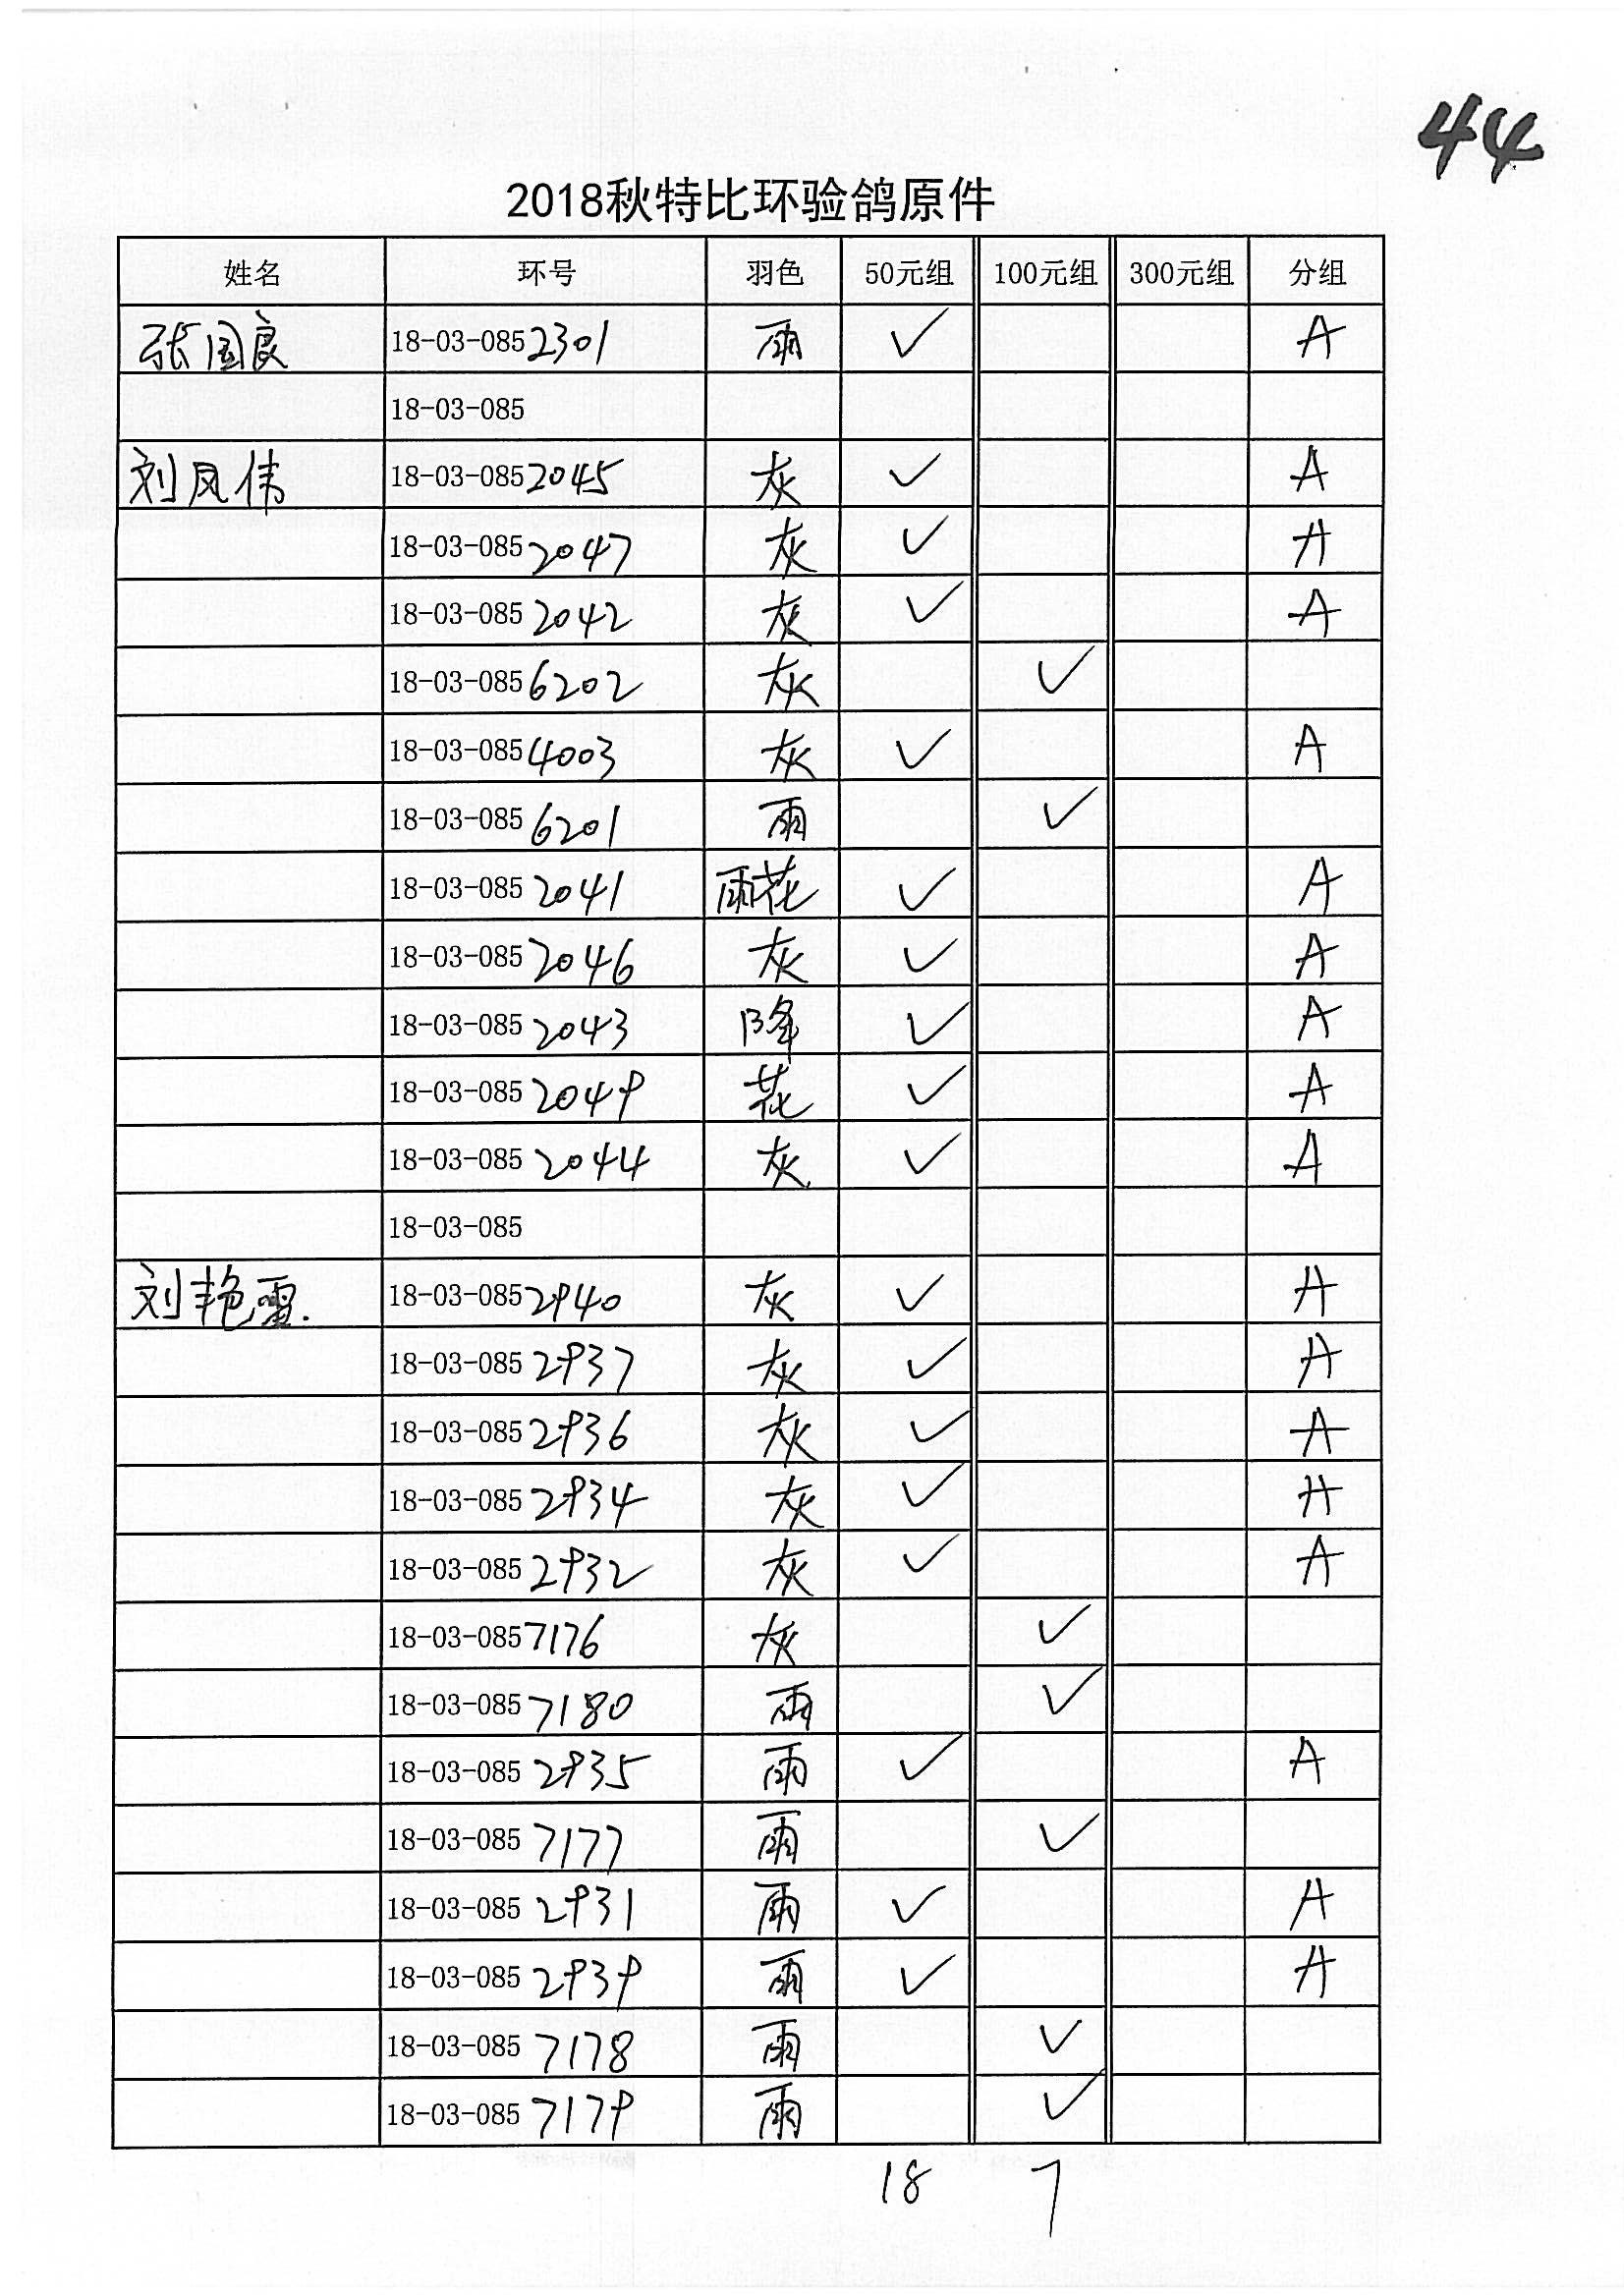 44
2018秋特比环验鸽原件
姓名 环号 羽色 50元组 100元组 300元组 分组
张国良 18-03-0852301 雨 ✓ A
18-03-085
刘凤伟 18-03-0852045 灰 ✓ A
18-03-0852047 灰 ✓ A
18-03-0852042 灰 ✓ A
18-03-0856202 灰 ✓
18-03-0854003 灰 ✓ A
18-03-0856201 雨 ✓
18-03-0852041 雨花 ✓ A
18-03-0852046 灰 ✓ A
18-03-0852043 降 ✓ A
18-03-0852049 花 ✓ A
18-03-0852044 灰 ✓ A
18-03-085
刘艳雪. 18-03-0852940 灰 ✓ A
18-03-0852937 灰 ✓ A
18-03-0852936 灰 ✓ A
18-03-0852934 灰 ✓ A
18-03-0852932 灰 ✓ A
18-03-0857176 灰 ✓
18-03-0857180 雨 ✓
18-03-0852935 雨 ✓ A
18-03-0857177 雨 ✓
18-03-0852931 雨 ✓ A
18-03-0852939 雨 ✓ A
18-03-0857178 雨 ✓
18-03-0857179 雨 ✓
18 7